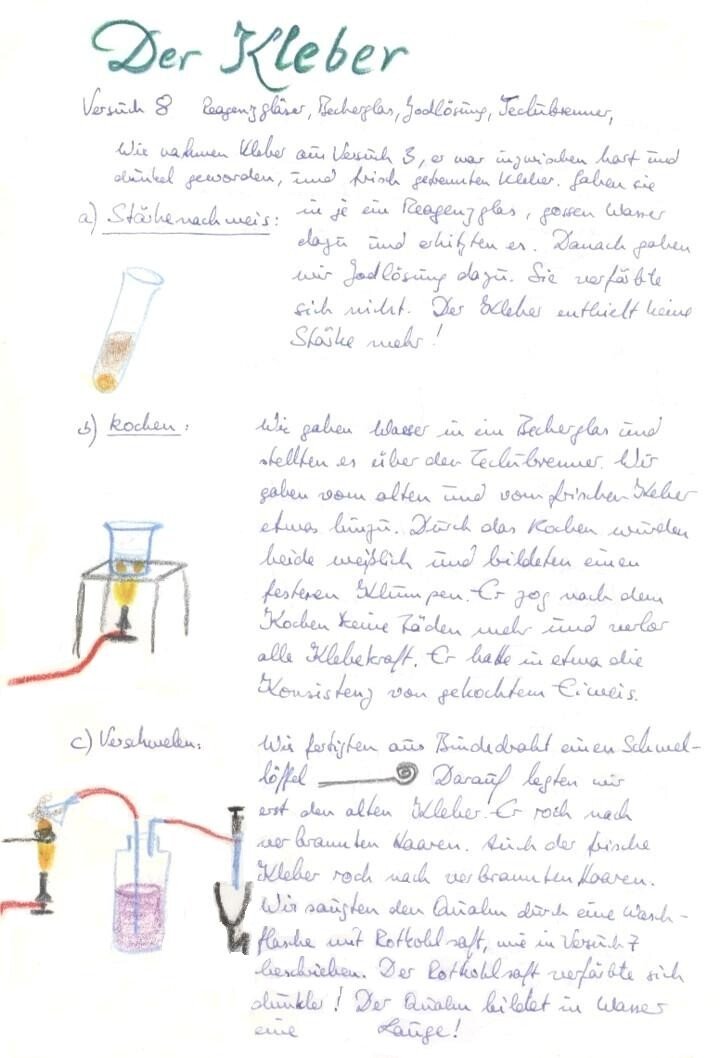 Der Kleber
Versuch 8 Reagenzgläser, Becherglas, Jodlösung, Teclubrenner,
Wir nahmen Kleber aus Versuch 3, er war inzwischen hart und
dunkel geworden, und frisch getrennten Kleber. Gaben sie
a) Stärkenachweis: in je ein Reagenzglas, gossen Wasser
dazu und erhitzten es. Danach gaben
wir Jodlösung dazu. Sie verfärbte
sich nicht. Der Kleber enthielt keine
Stärke mehr!
b) kochen: Wir gaben Wasser in ein Becherglas und
stellten es über den Teclubrenner. Wir
gaben vom alten und vom frischen Kleber
etwas hinzu. Durch das Kochen wurden
beide weißlich und bildeten einen
festeren Klumpen. Er zog nach dem
Kochen keine Fäden mehr und verlor
alle Klebekraft. Er hatte in etwa die
Konsistenz von gekochtem Eiweis.
c) Verschwelen: Wir fertigten aus Bindedraht einen Schwel-
löffel Darauf legten wir
erst den alten Kleber. Er roch nach
verbrannten Haaren. Auch der frische
Kleber roch nach verbrannten Haaren.
Wir saugten den Qualm durch eine Wasch-
flasche mit Rotkohlsaft, wie in Versuch 7
beschrieben. Der Rotkohlsaft verfärbte sich
dunkler! Der Qualm bildet in Wasser
eine Lauge!